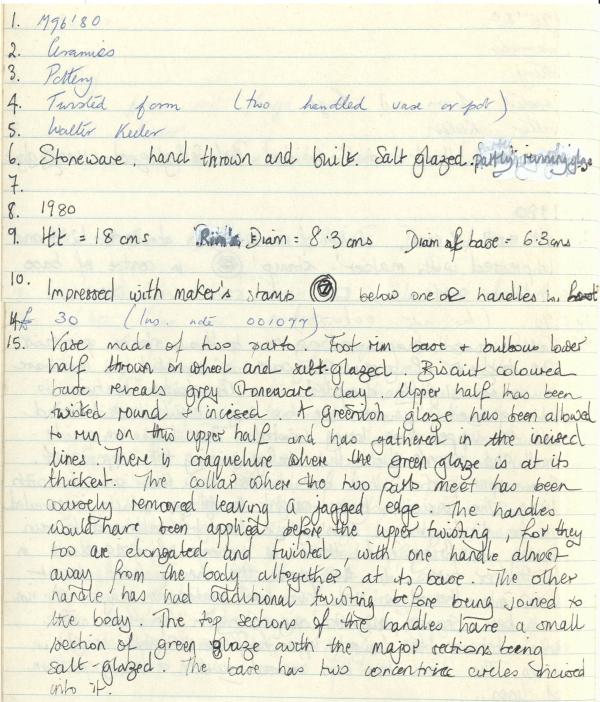 1. M96'80
2. Ceramics
3. Pottery
4. Twisted form (two handled vase or pot)
5. Walter Keeler
6. Stoneware, hand thrown and built. Salt glazed. partly running glaze
7.
8. 1980
9. Ht = 18 cms Rim Diam = 8.3 cms Diam of base = 6.3 cms
10. Impressed with maker's stamp below one of handles in
14. £ 30 (Ins. note 001077)
15. Vase made of two parts. Foot rim base + bulbous lower
half thrown on wheel and salt-glazed. Biscuit coloured
base reveals grey stoneware clay. Upper half has been
twisted round + incised A greenish glaze has been allowed
to run on this upper half and has gathered in the incised
lines. There is craquelure where the green glaze is at its
thickest. The collar where the two parts meet has been
coarsely removed leaving a jagged edge. The handles
would have been applied before the upper twisting, for they
too are elongated and twisted, with one handle almost
away from the body altogether at its base. The other
handle has had additional twisting before being joined to
the body. The top sections of the handles have a small
section of green glaze with the major sections being
salt-glazed. The base has two concentric circles incised
into it.